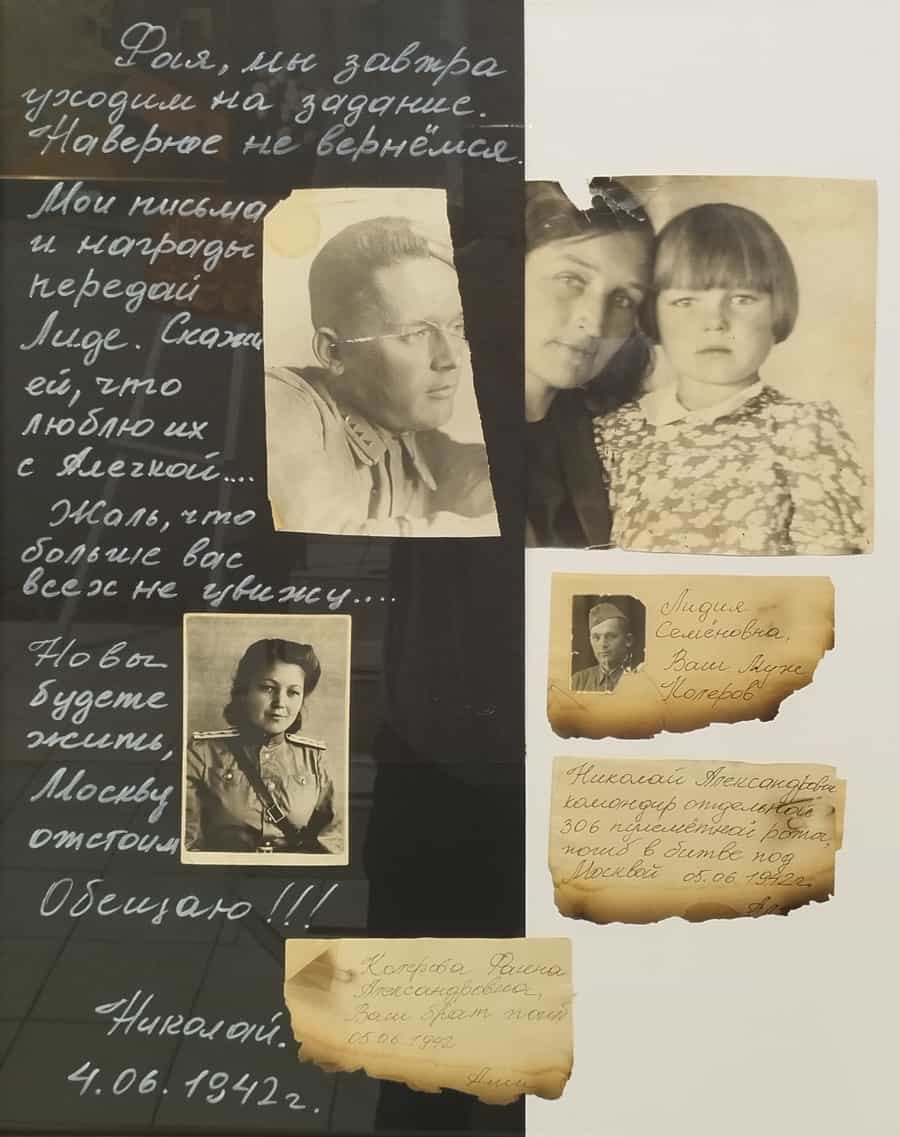 Фая, мы завтра
уходим на задание.
Наверное не вернёмся.
Мои письма
и награды
передай
Лиде. Скажи
ей, что
люблю их
с Алечкой....
Жаль, что
больше вас
всех не увижу....
Но вы
будете
жить,
Москву
отстоим
Обещаю!!!
Николай.
4.06.1942г.
Лидия
Семёновна,
Ваш Муж
Котеров
Николай Александрович
командир отдельной
306 пулемётной роты,
погиб в битве под
Москвой 05.06 1942г.
Котерова Фаина
Александровна,
Ваш брат погиб
05.06 1942